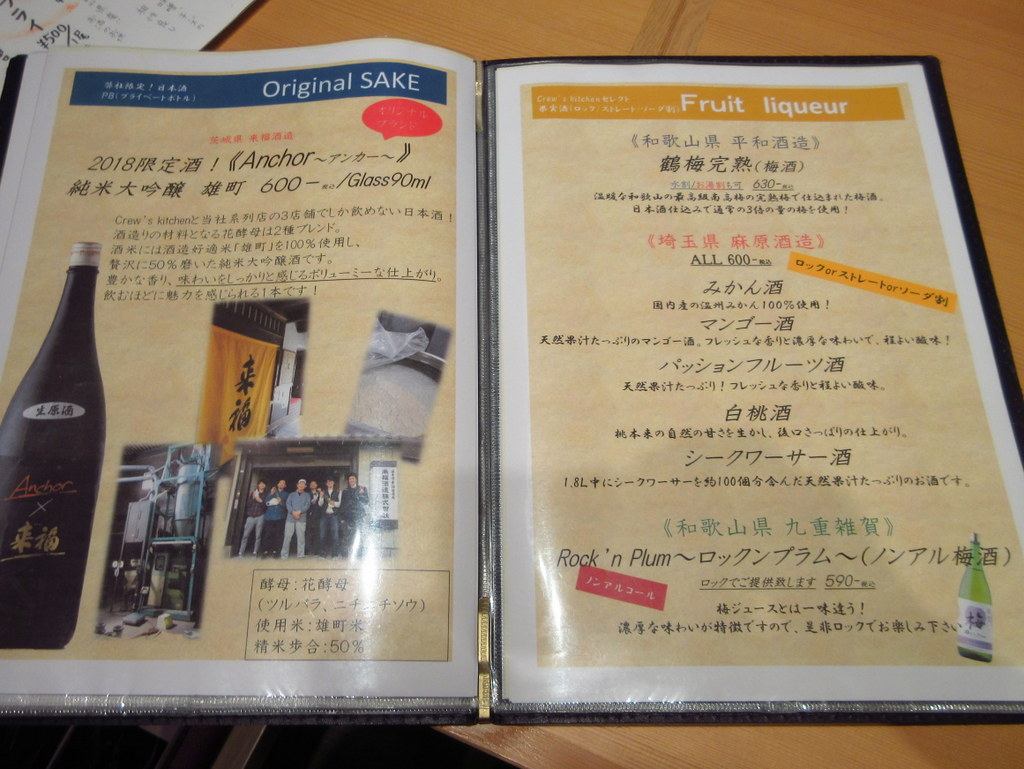 ライ
¥500/1尾
弊社限定!日本酒
PB(プライベートボトル)
Original SAKE
オリジナル
ブランド
茨城県 来福酒造
2018限定酒!《Anchor~アンカー~》
純米大吟醸 雄町 600-税込/Glass90ml
Crew's kitchenと当社系列店の3店舗でしか飲めない日本酒!
酒造りの材料となる花酵母は2種ブレンド。
酒米には酒造好適米「雄町」を100%使用し、
贅沢に50%磨いた純米大吟醸酒です。
豊かな香り、味わいをしっかりと感じるボリューミーな仕上がり。
飲むほどに魅力を感じられる1本です!
生原酒
Anchor
×
来福
来福
酵母:花酵母
(ツルバラ、ニチニチソウ)
使用米:雄町米
精米歩合:50%
Crew's kitchenセレクト
果実酒(ロック/ストレート・ソーダ割)
Fruit liqueur
《和歌山県 平和酒造》
鶴梅完熟(梅酒)
水割/お湯割も可 630-税込
温暖な和歌山の最高級南高梅の完熟梅で仕込まれた梅酒。
日本酒仕込みで通常の3倍の量の梅を使用!
《埼玉県 麻原酒造》
ALL 600-税込
ロックorストレートorソーダ割
みかん酒
国内産の温州みかん100%使用!
マンゴー酒
天然果汁たっぷりのマンゴー酒。フレッシュな香りと濃厚な味わいで、程よい酸味!
パッションフルーツ酒
天然果汁たっぷり!フレッシュな香りと程よい酸味。
白桃酒
桃本来の自然の甘さを生かし、後口さっぱりの仕上がり。
シークワーサー酒
1.8L中にシークワーサーを約100個分含んだ天然果汁たっぷりのお酒です。
《和歌山県 九重雑賀》
Rock'n Plum~ロックンプラム~(ノンアル梅酒)
ノンアルコール
ロックでご提供致します 590-税込
梅ジュースとは一味違う!
濃厚な味わいが特徴ですので、是非ロックでお楽しみ下さい
梅